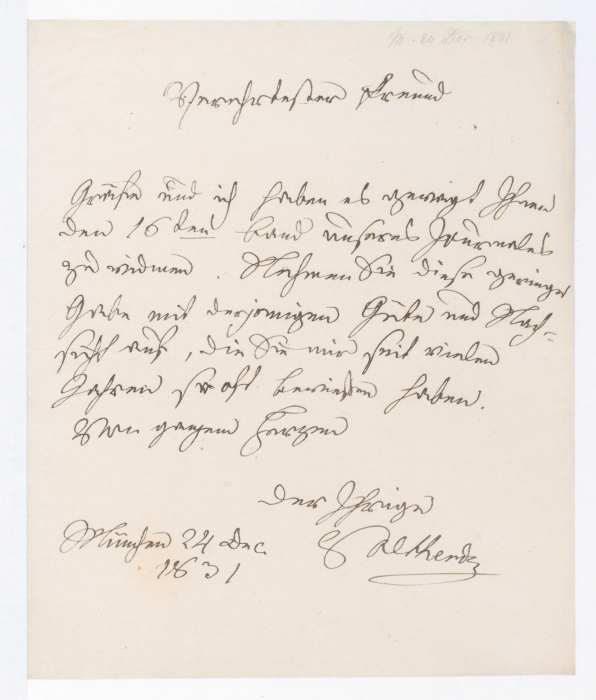 24 Dec 1831
Verehrtester Freund
Gräfe und ich haben es gewagt Ihnen
den 16ten Band unseres Journales
zu widmen. Nehmen Sie diese geringe
Gabe mit derjenigen Güte und Nach-
sicht auf, die Sie mir seit vielen
Jahren so oft bewiesen haben.
Von ganzem Herzen
der Ihrige
München 24 Dec
1831